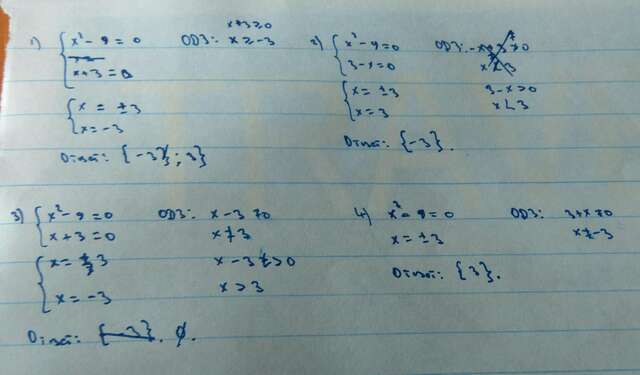 1) { x² - 9 = 0
x + 3 = 0
ОДЗ: x+3 ≥ 0
x ≥ -3
{ x = ±3
x = -3
Ответ: {-3; 3}
2) { x² - 9 = 0
3 - x = 0
ОДЗ:
x < 3
{ x = ±3
x = 3
3 - x > 0
x < 3
Ответ: {-3}.
3) { x² - 9 = 0
x + 3 = 0
ОДЗ: x - 3 ≠ 0
x ≠ 3
{ x = ±3
x = -3
x - 3 > 0
x > 3
Ответ: {-3}. ∅.
4) x² - 9 = 0
x = ±3
ОДЗ: 3 + x ≠ 0
x ≠ -3
Ответ: {3}.